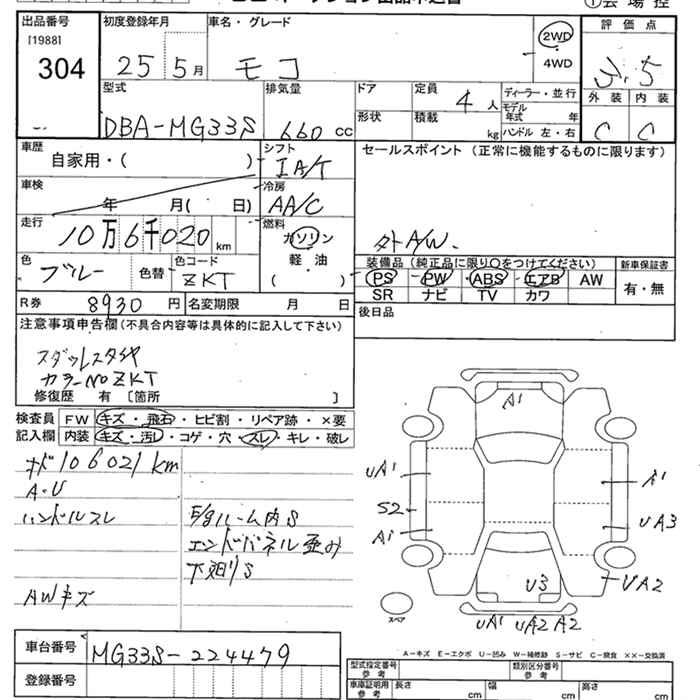 出品番号 初度登録年月 車名・グレード 評価点
[1988] 304 25年 5月 モコ 2WD 4WD 3.5
型式 排気量 ドア 定員 ディーラー・並行 外装 内装
DBA-MG33S 660 cc 4人 モデル年式 年 C C
形状 積載 kg ハンドル 左・右
車歴 シフト セールスポイント(正常に機能するものに限ります)
自家用・( ) IA/T
車検 年 月( 日) 冷房 AA/C
走行 10万6千020 km 燃料 ガソリン 外A/W.
軽・油
( ・ )
色 ブルー 色替 色コード ZKT
装備品(純正品に限り○をつけてください) 新車保証書
PS・PW・ABS・エアB AW 有・無
SR ナビ TV カワ
R券 8930 円 名変期限 月 日 後日品
注意事項申告欄(不具合内容等は具体的に記入して下さい)
スタッドレスタイヤ
カラーNo ZKT
修復歴 有 [箇所 ]
検査員 FW キズ・飛石・ヒビ割・リペア跡・×要
記入欄 内装 キズ・汚レ・コゲ・穴・スレ・キレ・破レ
106021km
A・U
ハンドルスレ
ルーム内S
エンドパネル歪み
下廻りS
AWキズ
A1
UA1 A1
S2
A1 UA3
U3 UA2
スペア
UA1 UA2 A2
A-キズ E-エクボ U-凹み W-補修跡 S-サビ C-腐食 ××-交換済
車台番号 MG33S-224479
登録番号
型式指定番号 参考 類別区分番号 参考
車庫証明用 参考 長さ cm 幅 cm 高さ cm